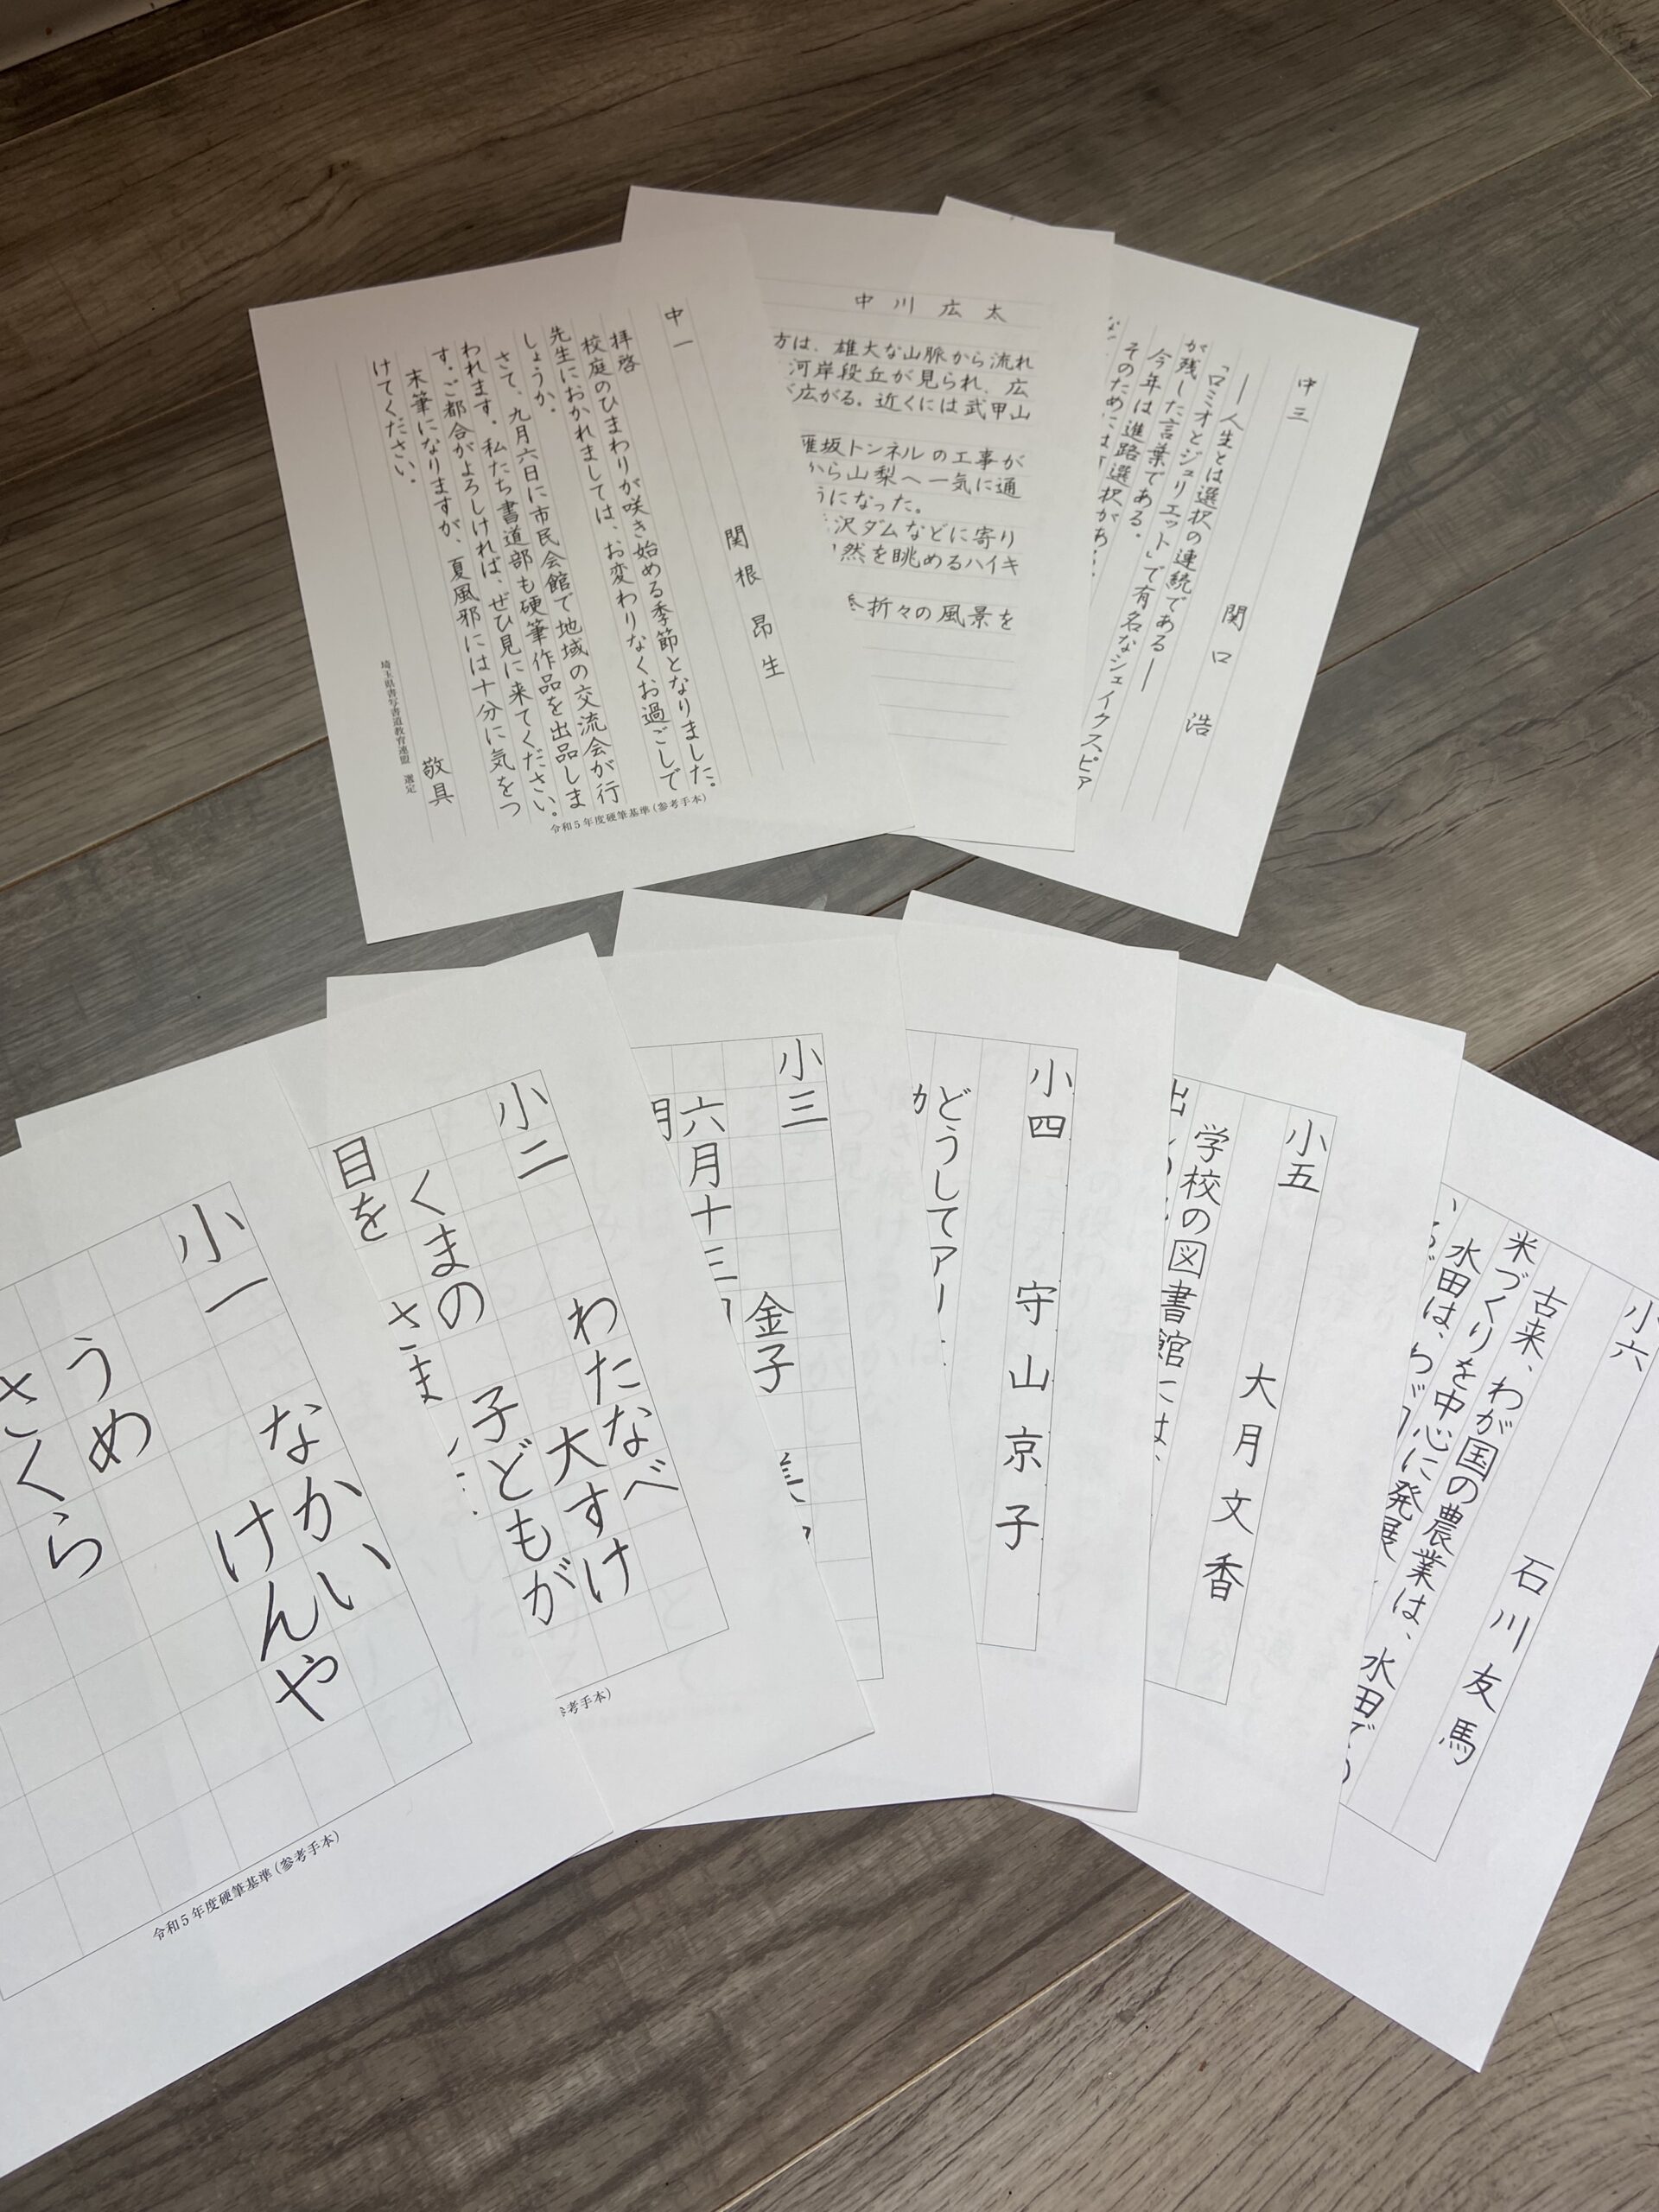 中一　関根昂生
拝啓
校庭のひまわりが咲き始める季節となりました。
先生におかれましては、お変わりなくお過ごしで
しょうか。
さて、九月六日に市民会館で地域の交流会が行
われます。私たち書道部も硬筆作品を出品しま
す。ご都合がよろしければ、ぜひ見に来てください。
末筆になりますが、夏風邪には十分に気をつ
けてください。
敬具
埼玉県書写書道教育連盟　選定
令和5年度硬筆基準(参考手本)
中川広太
方は、雄大な山脈から流れ
河岸段丘が見られ、広
が広がる。近くには武甲山
雁坂トンネルの工事が
から山梨へ一気に通
うになった。
沢ダムなどに寄り
然を眺めるハイキ
折々の風景を
中三　関口浩
―人生とは選択の連続である―
「ロミオとジュリエット」で有名なシェイクスピア
が残した言葉である。
今年は進路選択があ
そのためには
な
小一
なかい　けんや
うめ
さくら
令和5年度硬筆基準(参考手本)
小二
わたなべ　大すけ
くまの　子どもが
目を　さま
参考手本)
小三　金子
六月十三
小四　守山京子
どうしてアー
か
小五　大月文香
学校の図書館には、
出
小六　石川友馬
古来、わが国の農業は、水田での
米づくりを中心に発展
水田は、わが